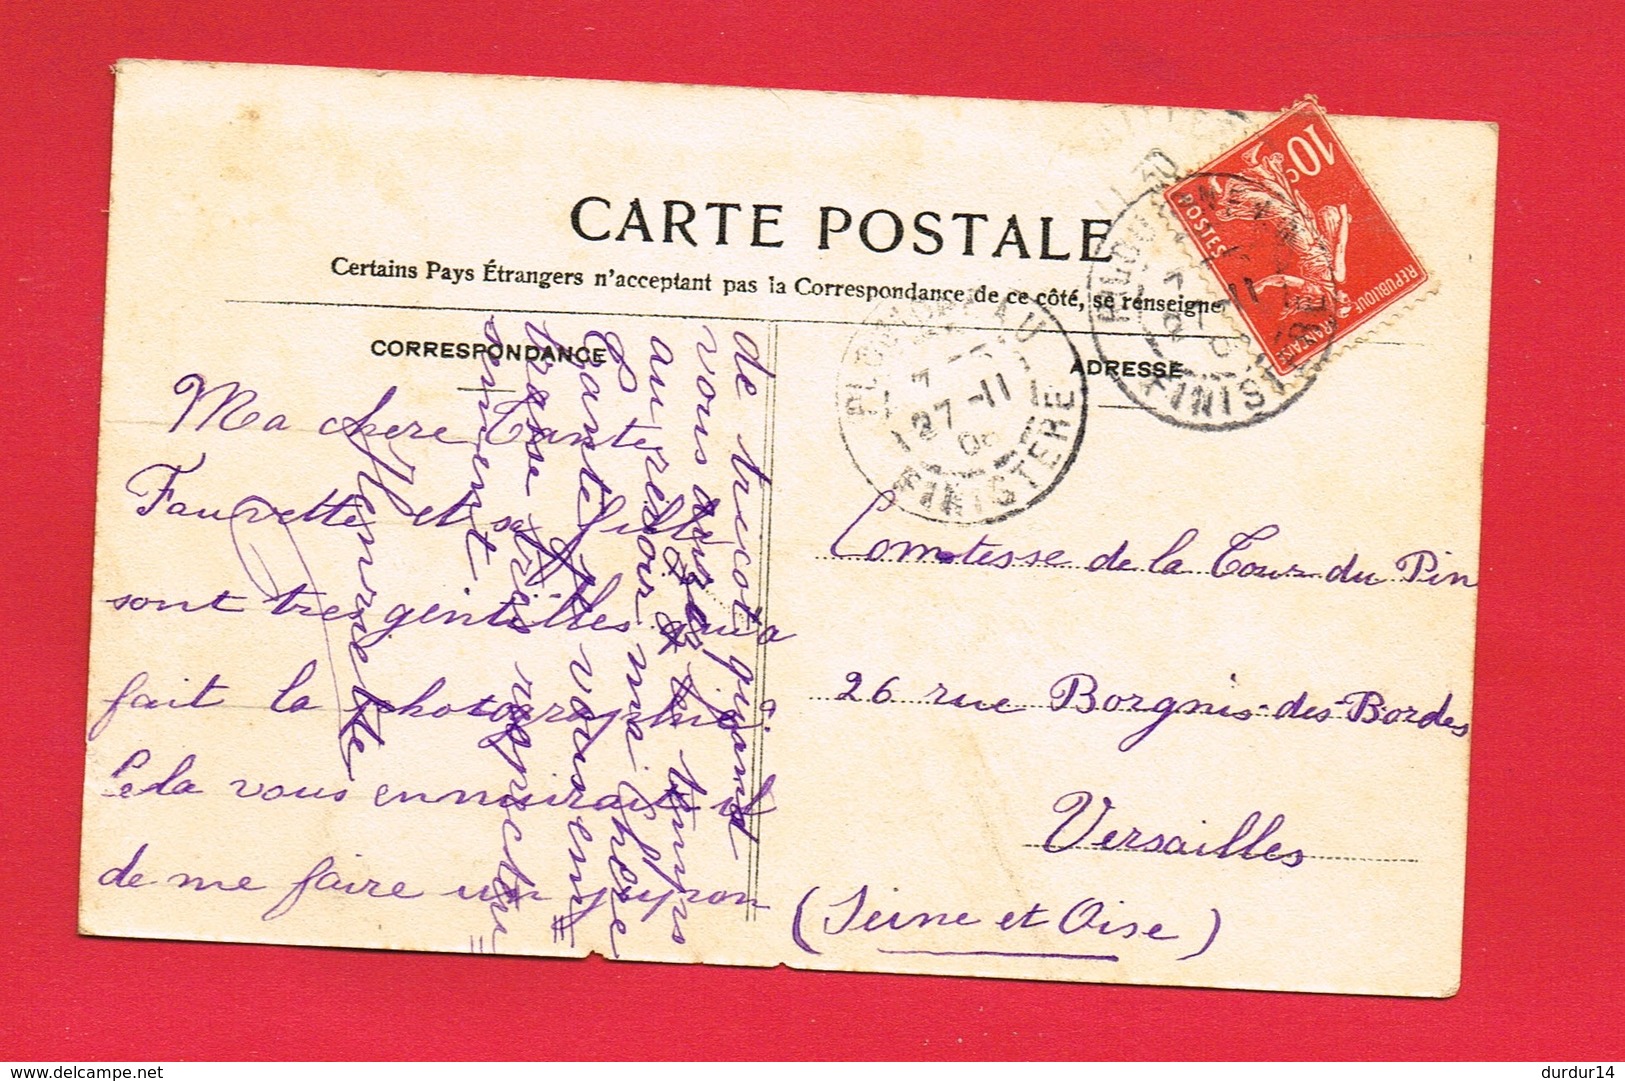 CARTE POSTALE
Certains Pays Étrangers n'acceptent pas la Correspondance de ce côté, se renseigner
CORRESPONDANCE
ADRESSE
Ma chere Tante
Fauvette et sa fille
sont tres gentilles
fait la photographie
Cela vous ennuirait il
de me faire un jupon
de tricot quand
vous aurez le temps
au revoir ma chere
Tante je vous em
brasse très respectueu
sement
Henriette
Comtesse de la Tour du Pin
26 rue Borgnis-des-Bordes
Versailles
(Seine et Oise)
10c
POSTES
REPUBLIQUE FRANCAISE
27-11
FINISTERE
FINISTERE
delcampe.net
durdur14